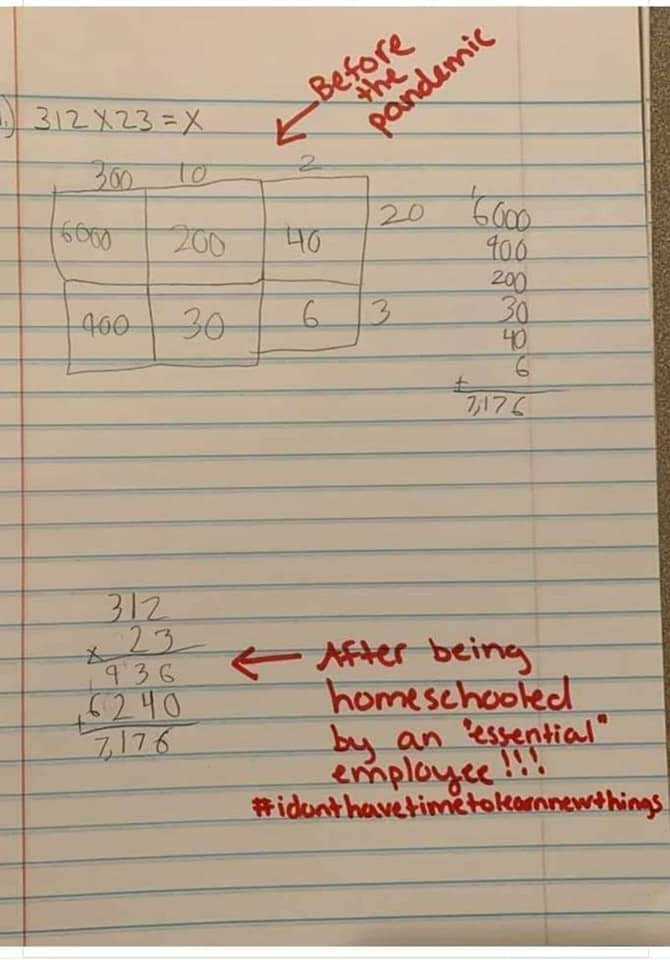 Before
the
pandemic
1.) 312 X 23 = X
300 10 2
6000 200 40 20
900 30 6 3
1
6000
900
200
30
40
6
+
7,176
312
x 23
936
1
+6240
7,176
After being
homeschooled
by an "essential"
employee!!!
#idonthavetimetolearnnewthings